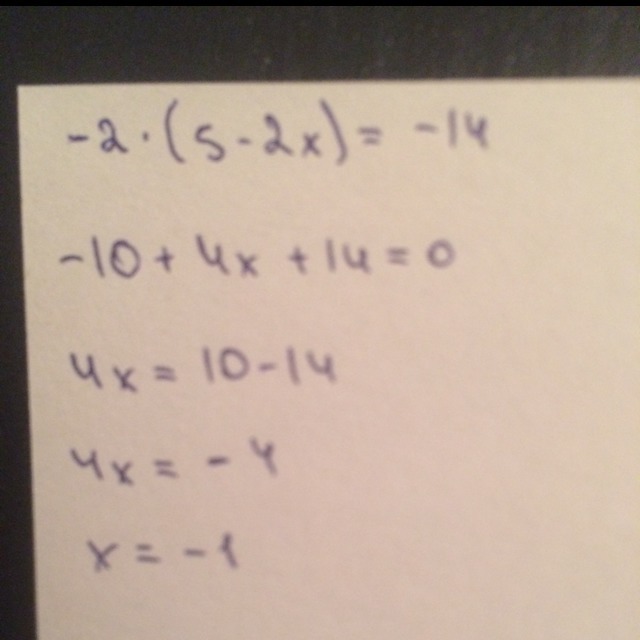 -2·(5-2x)= -14
-10+4x+14=0
4x=10-14
4x=-4
x=-1